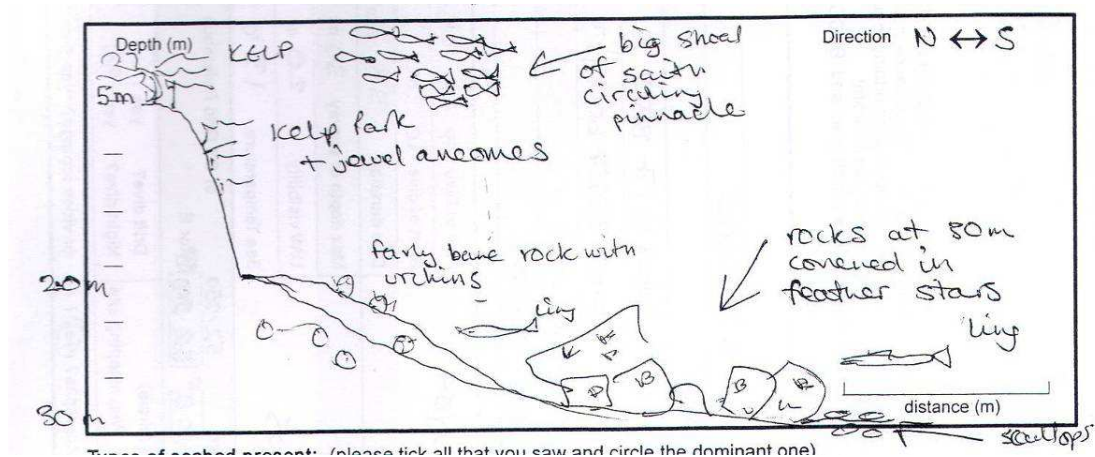 Depth (m)
KELP
big shoal
of saith
circling
pinnacle
Direction N ↔ S
5m
Kelp Park
+ jewel aneomes
20m
fairly bare rock with
urchins
ling
rocks at 30m
covered in
feather stars
ling
30 m
distance (m)
scallops
Types of seabed present: (please tick all that you saw and circle the dominant one)